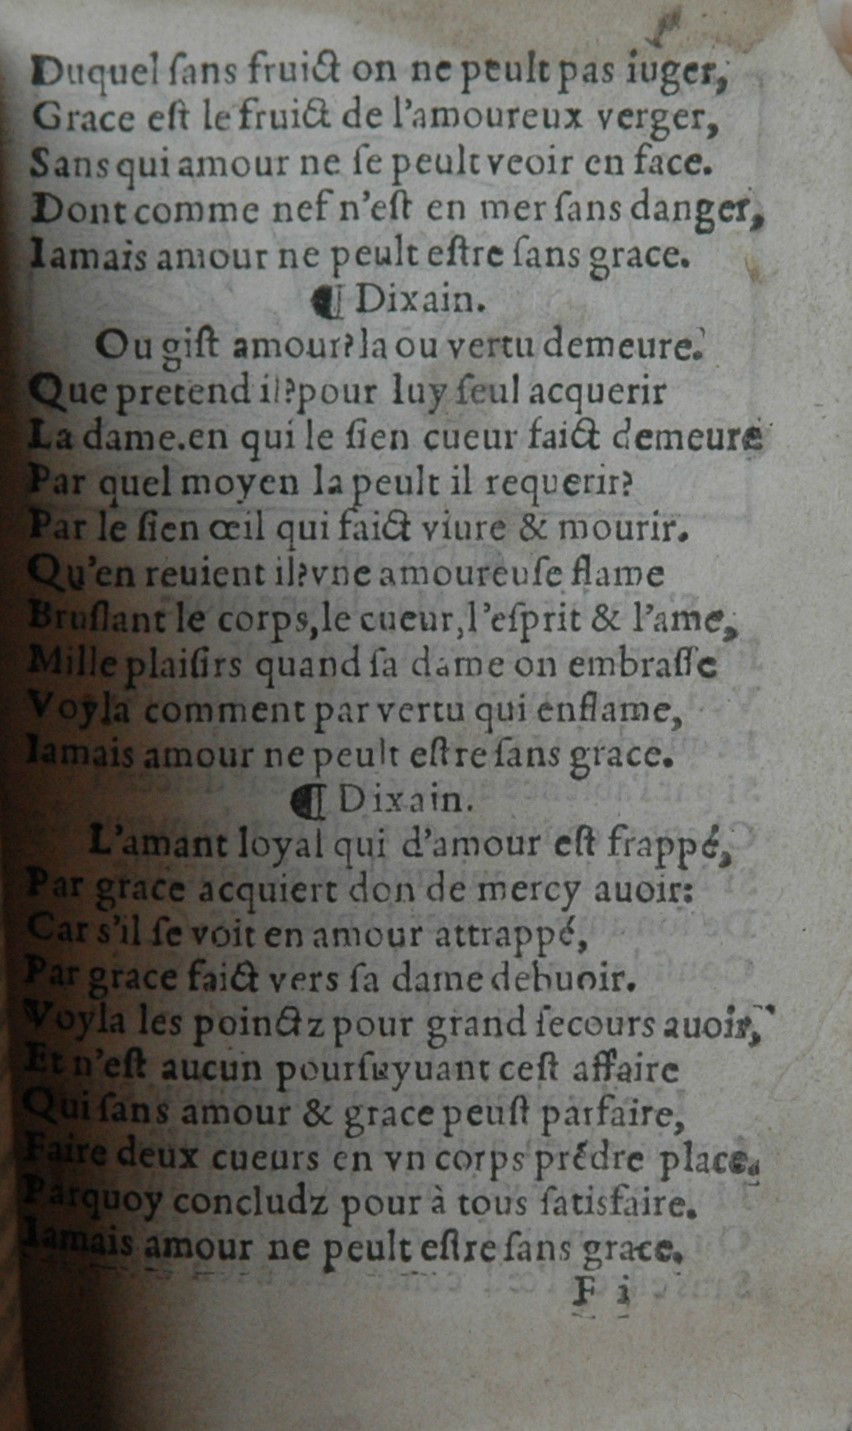 Duquel ſans fruict on ne peult pas iuger,
Grace eſt le fruict de l'amoureux verger,
Sans qui amour ne ſe peult veoir en face.
Dont comme nef n'eſt en mer ſans danger,
Iamais amour ne peult eſtre ſans grace.
¶ Dixain.
Ou giſt amour? la ou vertu demeure.
Que pretend il? pour luy ſeul acquerir
La dame. en qui le ſien cueur faict demeure
Par quel moyen la peult il requerir?
Par le ſien œil qui faict viure & mourir.
Qu'en reuient il? vne amoureuſe flame
Bruſlant le corps, le cueur, l'eſprit & l'ame,
Mille plaiſirs quand ſa dame on embraſſe
Voyla comment par vertu qui enflame,
Iamais amour ne peult eſtre ſans grace.
¶ Dixain.
L'amant loyal qui d'amour eſt frappé,
Par grace acquiert don de mercy auoir:
Car s'il ſe voit en amour attrappé,
Par grace faict vers ſa dame debuoir.
Voyla les poinctz pour grand ſecours auoir,
Et n'eſt aucun pourſuyuant ceſt affaire
Qui ſans amour & grace peuſt parfaire,
Faire deux cueurs en vn corps prẽdre place.
Parquoy concludz pour à tous ſatisfaire.
Iamais amour ne peult eſtre ſans grace.
F i